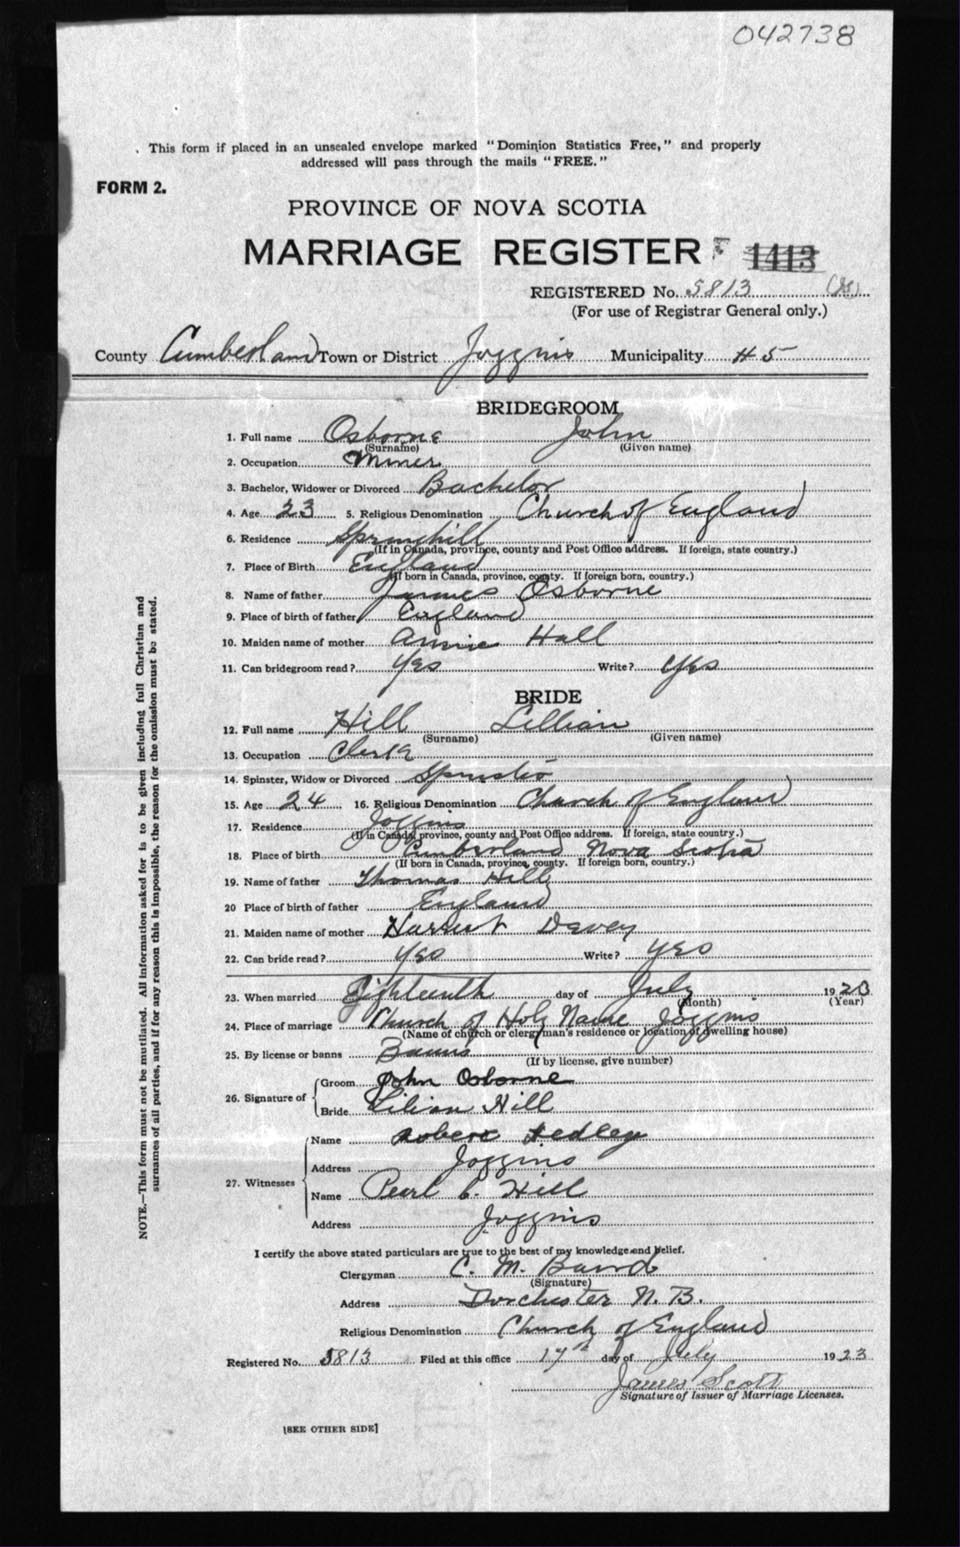 042738
This form if placed in an unsealed envelope marked "Dominion Statistics Free," and properly
addressed will pass through the mails "FREE."
FORM 2.
PROVINCE OF NOVA SCOTIA
MARRIAGE REGISTER 1413
REGISTERED No. 5813
(For use of Registrar General only.)
County Cumberland Town or District Joggins Municipality # 5
BRIDEGROOM
1. Full name Osborne John
(Surname) (Given name)
2. Occupation Miner
3. Bachelor, Widower or Divorced Bachelor
4. Age 23 5. Religious Denomination Church of England
6. Residence Springhill
(If in Canada, province, county and Post Office address. If foreign, state country.)
7. Place of Birth England
(If born in Canada, province, county. If foreign born, country.)
8. Name of father James Osborne
9. Place of birth of father England
10. Maiden name of mother Annie Hall
11. Can bridegroom read? Yes Write? Yes
BRIDE
12. Full name Hill Lillian
(Surname) (Given name)
13. Occupation Clerk
14. Spinster, Widow or Divorced Spinster
15. Age 24 16. Religious Denomination Church of England
17. Residence Joggins
(If in Canada, province, county and Post Office address. If foreign, state country.)
18. Place of birth Cumberland Nova Scotia
(If born in Canada, province, county. If foreign born, country.)
19. Name of father Thomas Hill
20 Place of birth of father England
21. Maiden name of mother Harriet Davey
22. Can bride read? Yes Write? Yes
23. When married Eighteenth day of July 1923
(Month) (Year)
24. Place of marriage Church of Holy Name Joggins
(Name of church or clergyman's residence or location of dwelling house)
25. By license or banns Banns
(If by license, give number)
26. Signature of Groom John Osborne
Bride Lilian Hill
27. Witnesses Name Robert Hedley
Address Joggins
Name Pearl C. Hill
Address Joggins
I certify the above stated particulars are true to the best of my knowledge and belief.
Clergyman C. M. Baird
(Signature)
Address Dorchester N. B.
Religious Denomination Church of England
Registered No. 5813 Filed at this office 17th day of July 1923
James Scott
Signature of Issuer of Marriage Licenses.
[SEE OTHER SIDE]
NOTE.—This form must not be mutilated. All information asked for is to be given including full Christian and
surnames of all parties, and if for any reason this is impossible, the reason for the omission must be stated.